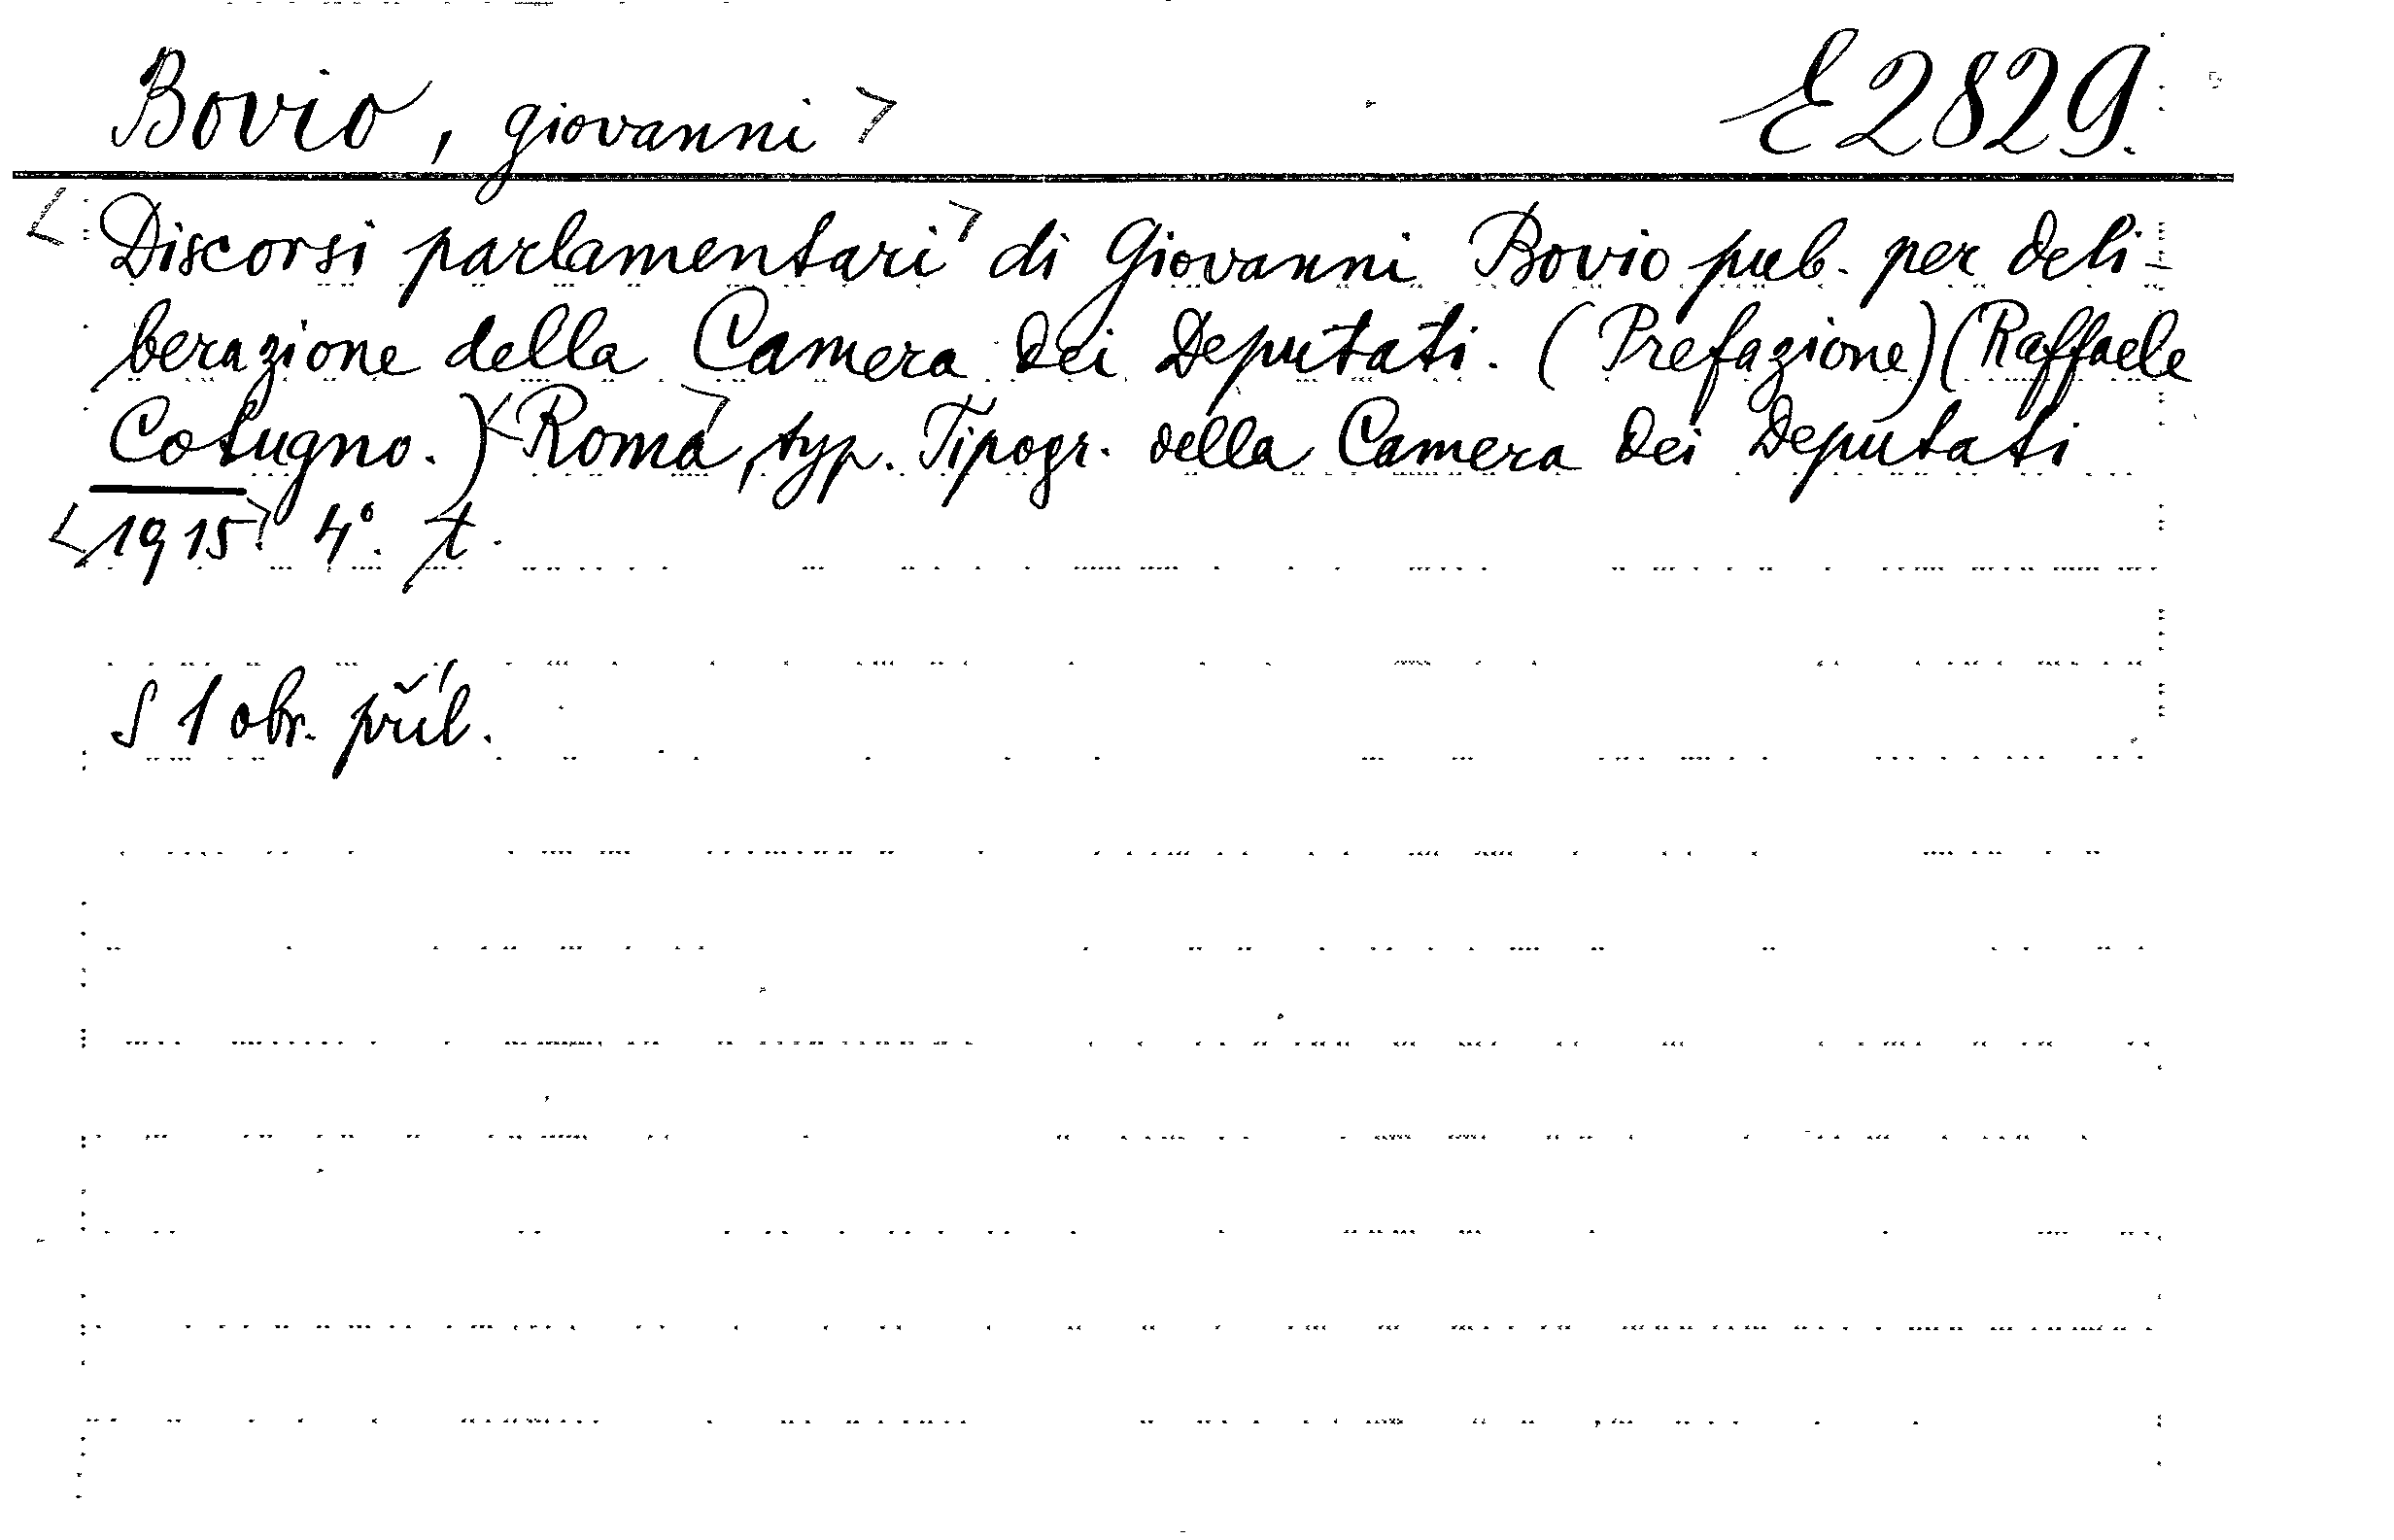 Bovio, Giovanni > E 2829.
<Discorsi parlamentari> di Giovanni Bovio pub. per deli-
berazione della Camera dei Deputati. (Prefazione) (Raffaele
Cotugno.) <Roma>, typ. Tipogr. della Camera dei Deputati
<1915> 4°. t.
S 1 obr. příl.